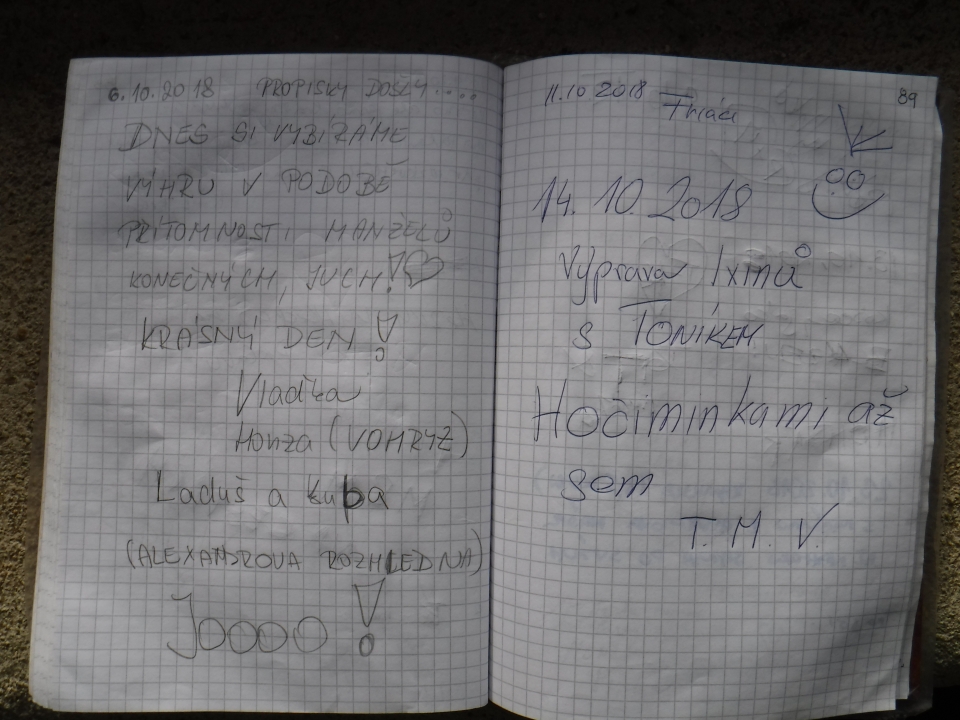 6.10.2018 PROPISKY DOŠLY....
DNES SI VYBÍRÁME
VÝHRU V PODOBĚ
PŘÍTOMNOSTI MANŽELŮ
KONEČNÝCH, JUCH!
KRÁSNÝ DEN!
Vlaďka
Honza (VOHRYZ)
Laduš a Kuba
(ALEXANDROVA ROZHLEDNA)
JOOOO!
11.10 2018
89
14. 10. 2018
Výprava Ixinů
s TONÍKEM
Hočiminkami až
sem
T. M. V.